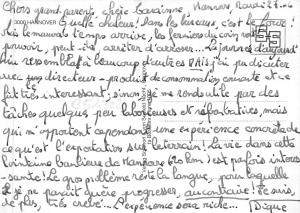 Chers grand-parents, chère
30001 HANNOVER Quelle chaleur! Dans les bureaux, c'est le four!
Si le mauvais temps arrive, les fermiers du coin vont
pouvoir, peut-être, arrêter d'arroser... La journée d'aujourd'
hui ressemblait à beaucoup d'autres MAIS j'ai pu discuter
avec un directeur - produit de consommation courante et ce
fut très intéressant, sinon je me rends utile par des
tâches quelque peu laborieuses et répétitives, mais
qui m'apportent cependant une expérience concrète de
ce qu'est l'exportation sur le terrain! La vie dans cette
lointaine banlieue de Hannovre (20 km) est parfois intéres-
-sante! Le gros problème reste la langue, pour laquelle
je ne parait guère progresser, au contraire! Je suis,
de plus, très crevé... L'expérience sera riche...